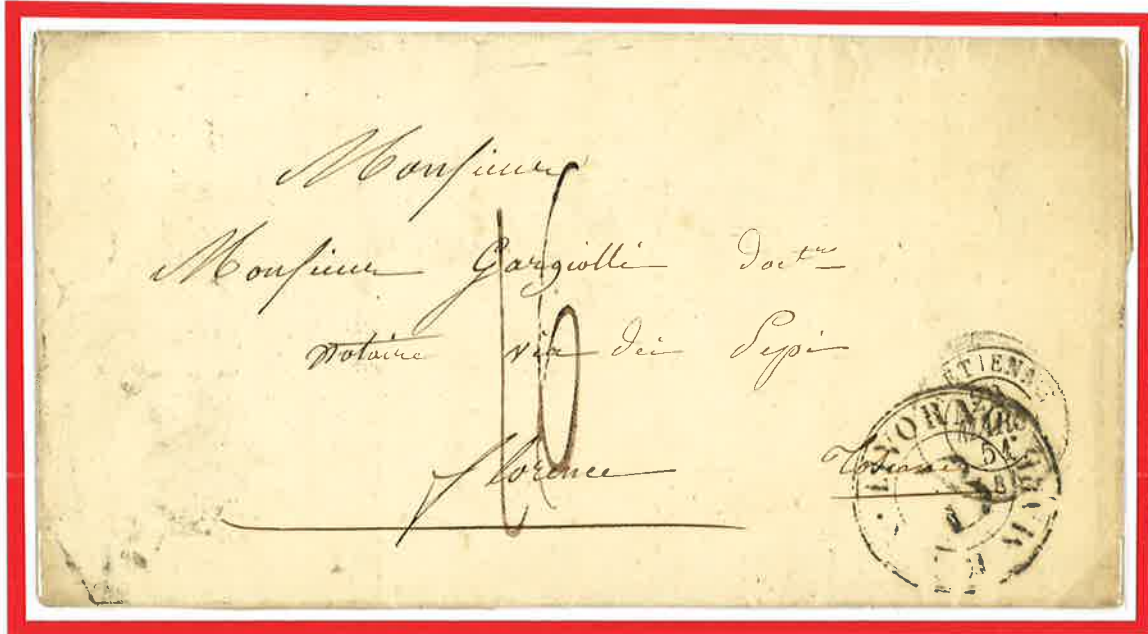 Monsieur
Monsieur Gargiolli Doct.re
Notaire via dei Pepi
Florence
Toscane
16
ETIENNE
MARS
51
LIVORNO